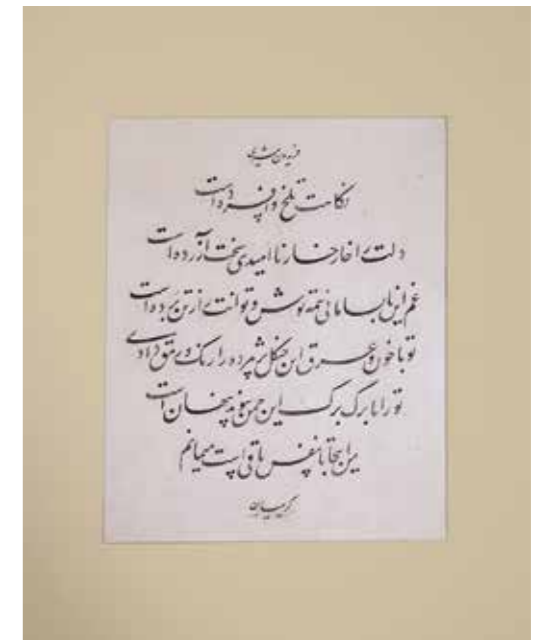 فریدون مشیری
نگاهت تلخ و افسرده است
دلت را خار خار ناامیدی سخت آزرده است
غم این نابسامانی همه توش و توانت را ز تن برده است
تو با خون و عرق این جنگل پژمرده را رنگ و رمق دادی
تو را با برگ برگ این چمن پیوند پنهان است
من اینجا تا نفس باقی است میمانم